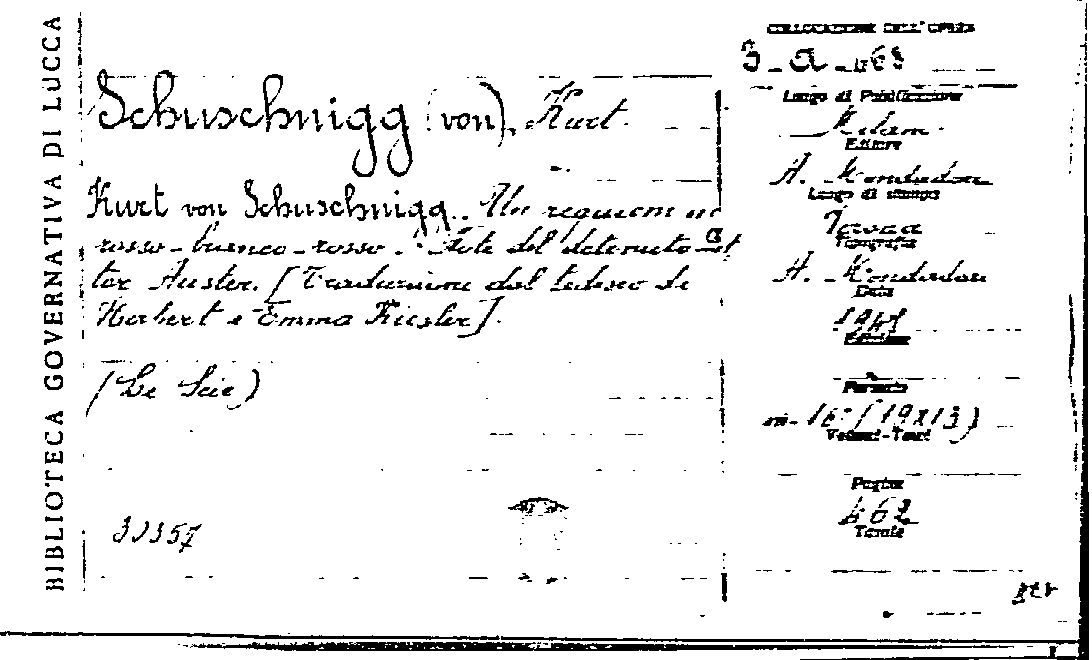 BIBLIOTECA GOVERNATIVA DI LUCCA
COLLOCAZIONE DELL'OPERA
3-a-
Schuschnigg (von), Kurt.
Luogo di Pubblicazione
Milano
Editore
A. Mondadori
Luogo di stampa
Tipografia
A. Mondadori
Data
Edizione
Formato
in-16° (19x13)
Volumi-Tomi
Pagine
462
Tavole
Kurt von Schuschnigg. Un requiem in
rosso-bianco-rosso. Note del detenuto
tor Auster. [Traduzione dal tedesco di
Herbert e Emma
(Le Scie)